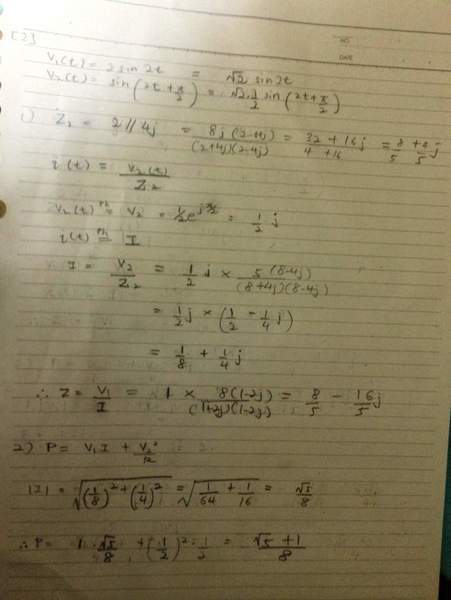 [2]
V₁(t) = 2 sin 2t = √2 sin 2t
V₂(t) = sin(2t + π/2) = √2 · 1/2 sin(2t + π/2)
1) Z₂ = 2 // 4j = 8j(2-4j)/(2+4j)(2-4j) = 32 + 16j/4 + 16 = 8/5 + 4/5 j
i(t) = V₂(t)/Z₂
V₂(t) Ph= V₂ = 1/2 e^jπ/2 = 1/2 j
i(t) Ph= I
I = V₂/Z₂ = 1/2 j × 5(8-4j)/(8+4j)(8-4j)
= 1/2 j × (1/2 - 1/4 j)
= 1/8 + 1/4 j
∴ Z = V₁/I = 1 × 8(1-2j)/(1+2j)(1-2j) = 8/5 - 16/5 j
2) P = V₁ I + V₂²/R
|I| = √((1/8)² + (1/4)²) = √(1/64 + 1/16) = √5/8
∴ P = 1 · √5/8 + (1/2)² · 1/2 = √5 + 1/8
NO
DATE